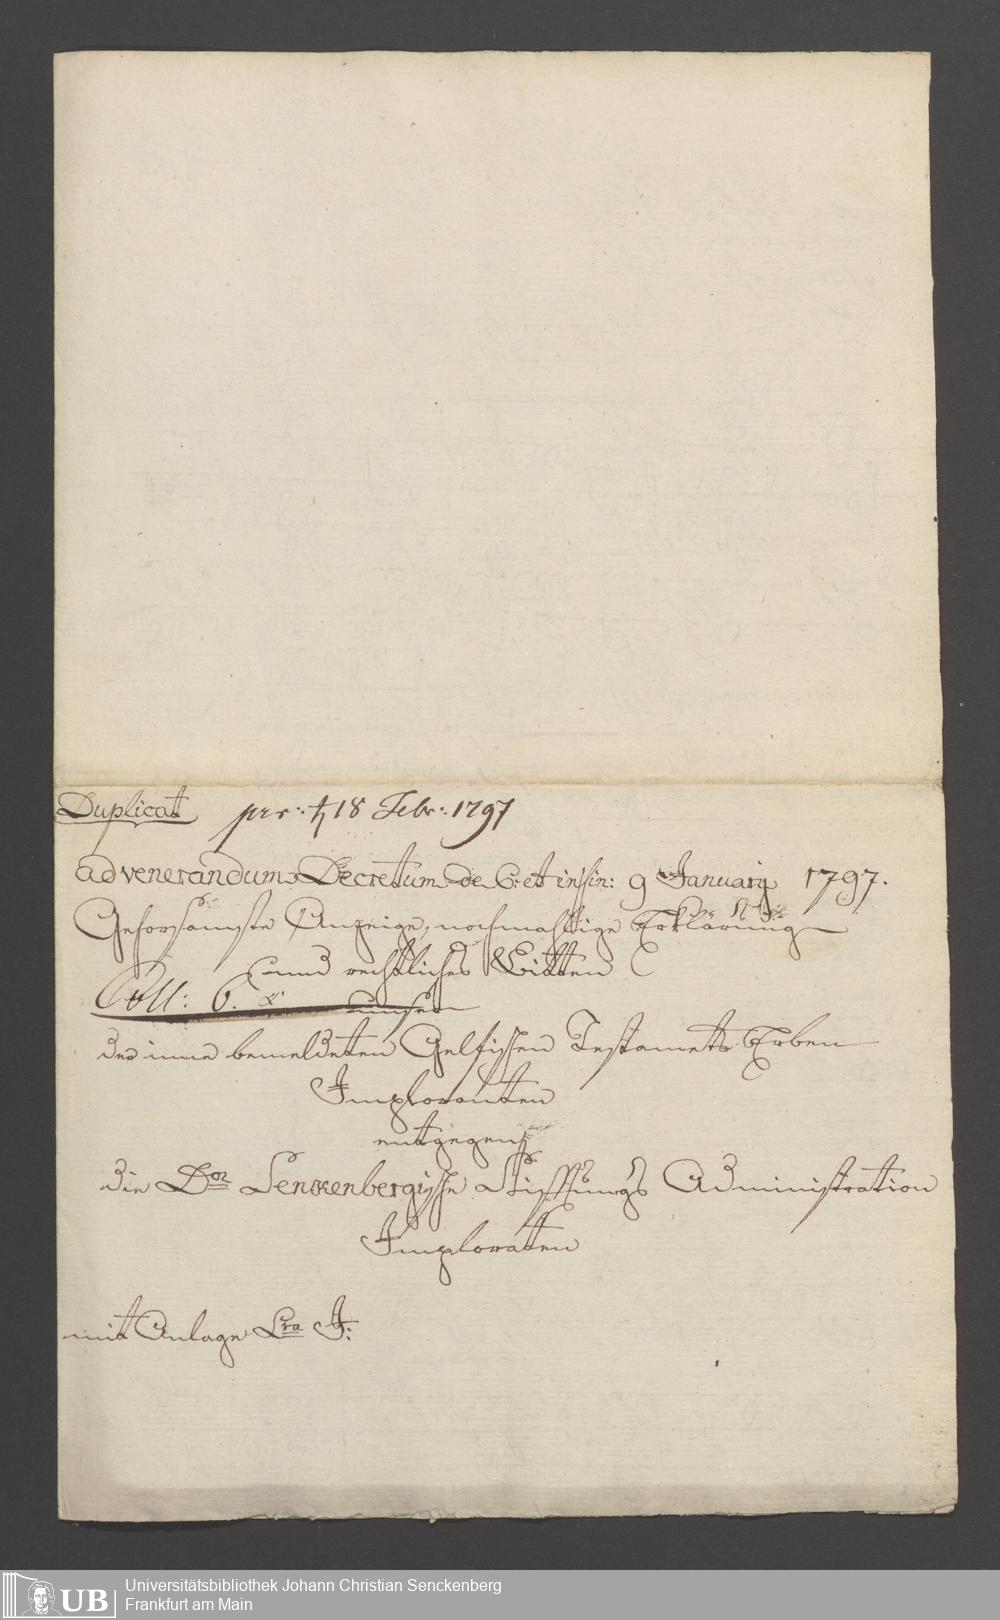 Duplicat pres: ♄ 18 Febr: 1797
ad venerandum Decretum de 6: et insin: 9 Januarij 1797.
Gehorsamste Anzeige, nochmahlige Erklärung
und rechtliches Bitten
Coll: 6. unser
der inne bemeldeten Gelfischen Testaments Erben
Imploranten
entgegen
die Dor Senckenbergische Stifftungs Administration
Imploraten
mit Anlage Lra J:
UB
Universitätsbibliothek Johann Christian Senckenberg
Frankfurt am Main